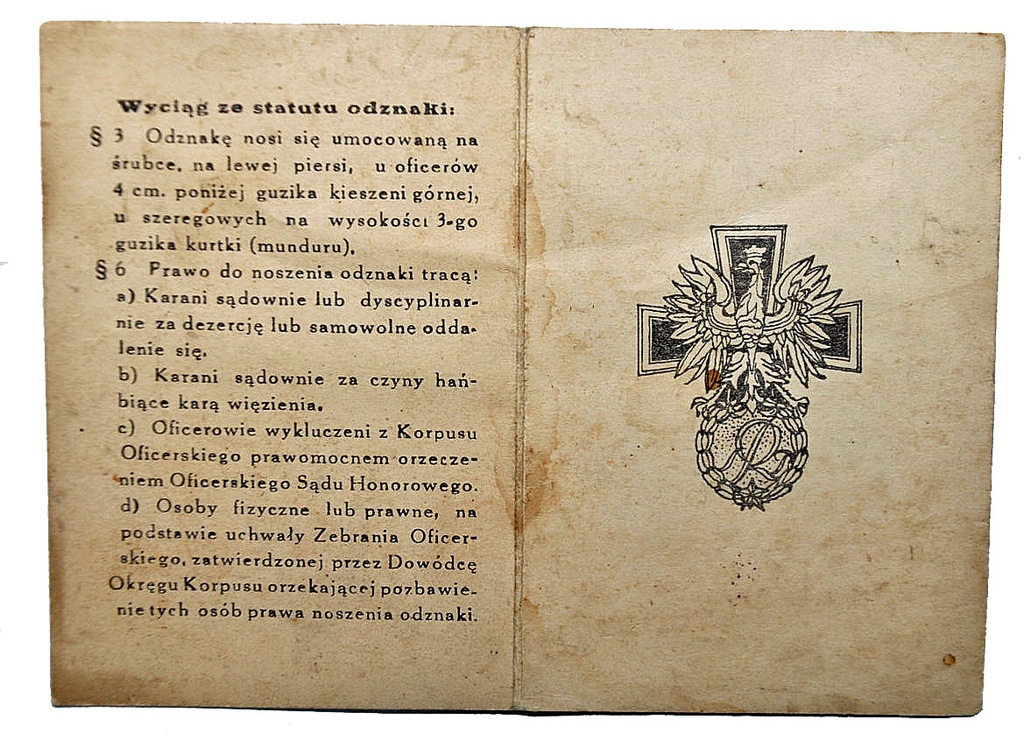 Wyciąg ze statutu odznaki:
§ 3 Odznakę nosi się umocowaną na
śrubce, na lewej piersi, u oficerów
4 cm. poniżej guzika kieszeni górnej,
u szeregowych na wysokości 3-go
guzika kurtki (munduru).
§ 6 Prawo do noszenia odznaki tracą:
a) Karani sądownie lub dyscyplinar-
nie za dezercję lub samowolne odda-
lenie się.
b) Karani sądownie za czyny hań-
biące karą więzienia.
c) Oficerowie wykluczeni z Korpusu
Oficerskiego prawomocnem orzecze-
niem Oficerskiego Sądu Honorowego.
d) Osoby fizyczne lub prawne, na
podstawie uchwały Zebrania Oficer-
skiego, zatwierdzonej przez Dowódcę
Okręgu Korpusu orzekającej pozbawie-
nie tych osób prawa noszenia odznaki.